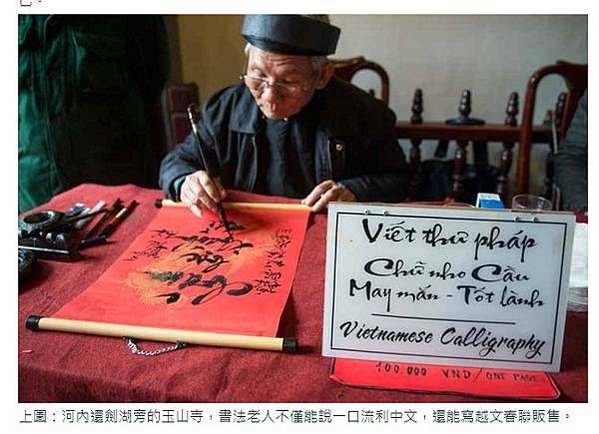 Viết thư pháp
Chữ nho Cầu
May mắn - Tốt lành
Vietnamese Calligraphy
100 000 VND/ONE PAGE
上圖：河內還劍湖旁的玉山寺，書法老人不僅能說一口流利中文，還能寫越文春聯販售。